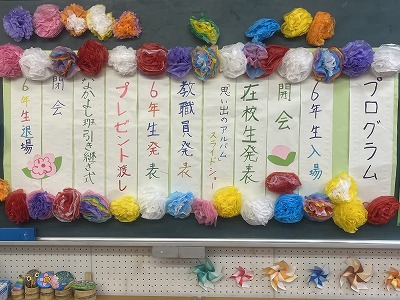 プログラム
6年生入場
開会
在校生発表
思い出のアルバム
スライドショー
教職員発表
6年生発表
プレゼント渡し
なかよし班引き継ぎ式
閉会
6年生退場